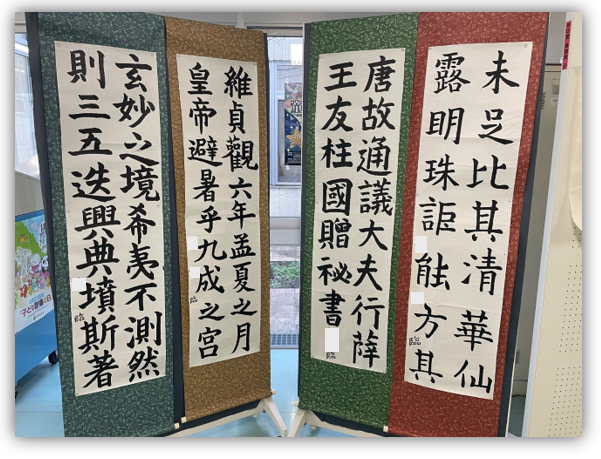 未足比其清華仙
露明珠詎能方其
唐故通議大夫行薛
王友柱國贈祕書
維貞觀六年孟夏之月
皇帝避暑乎九成之宮
臨
玄妙之境希夷不測然
則三五迭興典墳斯著
臨